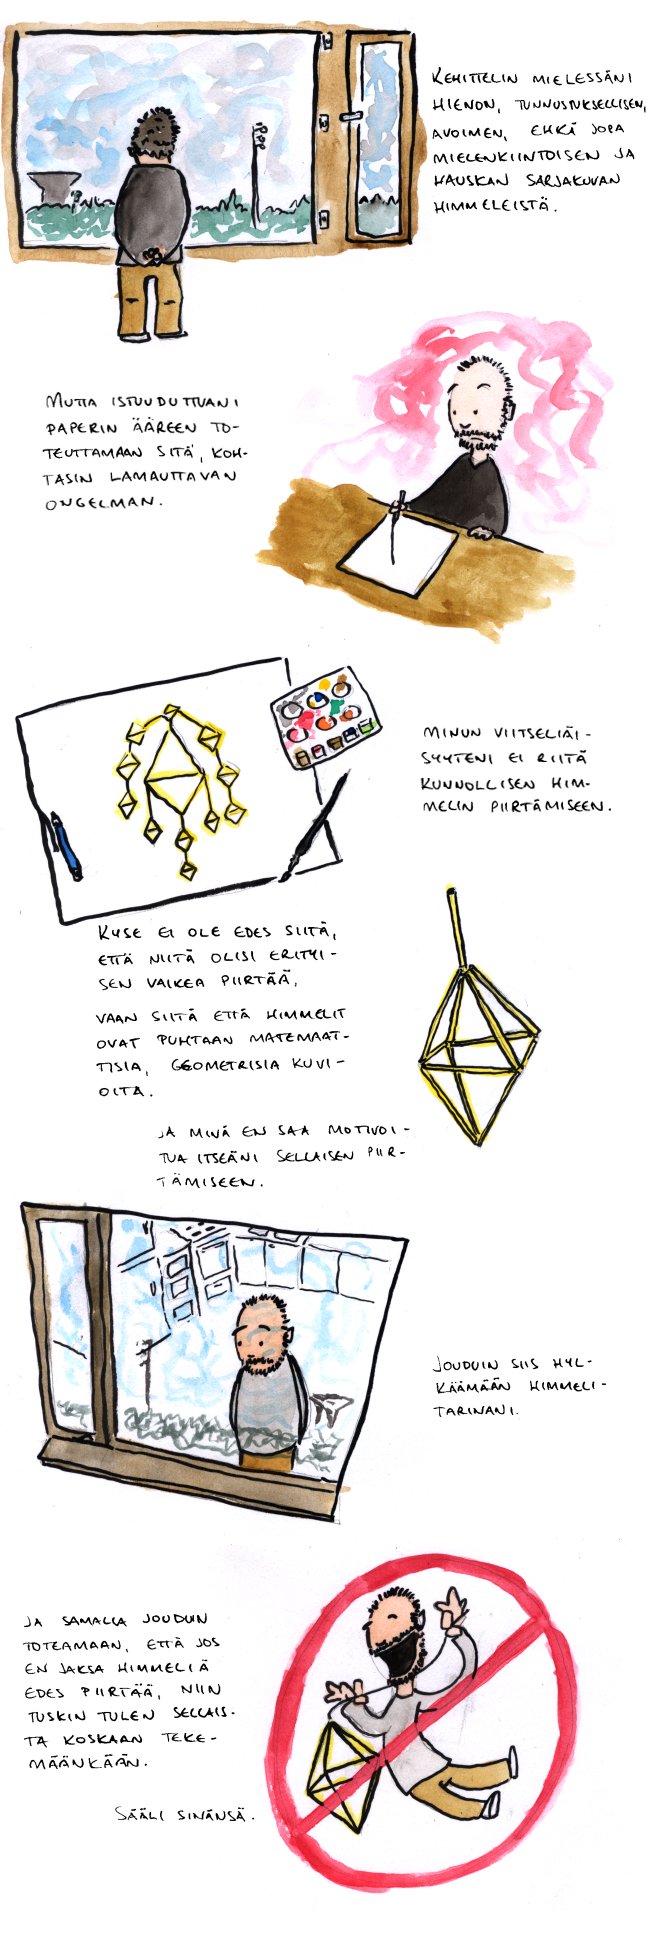 KEHITTELIN MIELESSÄNI
HIENON, TUNNUSTUKSELLISEN,
AVOIMEN, EHKÄ JOPA
MIELENKIINTOISEN JA
HAUSKAN SARJAKUVAN
HIMMELEISTÄ.
MUTTA ISTUUDUTTUANI
PAPERIN ÄÄREEN TO-
TEUTTAMAAN SITÄ, KOH-
TASIN LAMAUTTAVAN
ONGELMAN.
MINUN VIITSELIÄI-
SYYTENI EI RIITÄ
KUNNOLLISEN HIM-
MELIN PIIRTÄMISEEN.
KYSE EI OLE EDES SIITÄ,
ETTÄ NIITÄ OLISI ERITYI-
SEN VAIKEA PIIRTÄÄ,
VAAN SIITÄ ETTÄ HIMMELIT
OVAT PUHTAAN MATEMAAT-
TISIA, GEOMETRISIA KUVI-
OITA.
JA MINÄ EN SAA MOTIVOI-
TUA ITSEÄNI SELLAISEN PIIR-
TÄMISEEN.
JOUDUIN SIIS HYL-
KÄÄMÄÄN HIMMELI-
TARINANI.
JA SAMALLA JOUDUIN
TOTEAMAAN, ETTÄ JOS
EN JAKSA HIMMELIÄ
EDES PIIRTÄÄ, NIIN
TUSKIN TULEN SELLAIS-
TA KOSKAAN TEKE-
MÄÄNKÄÄN.
SÄÄLI SINÄNSÄ.